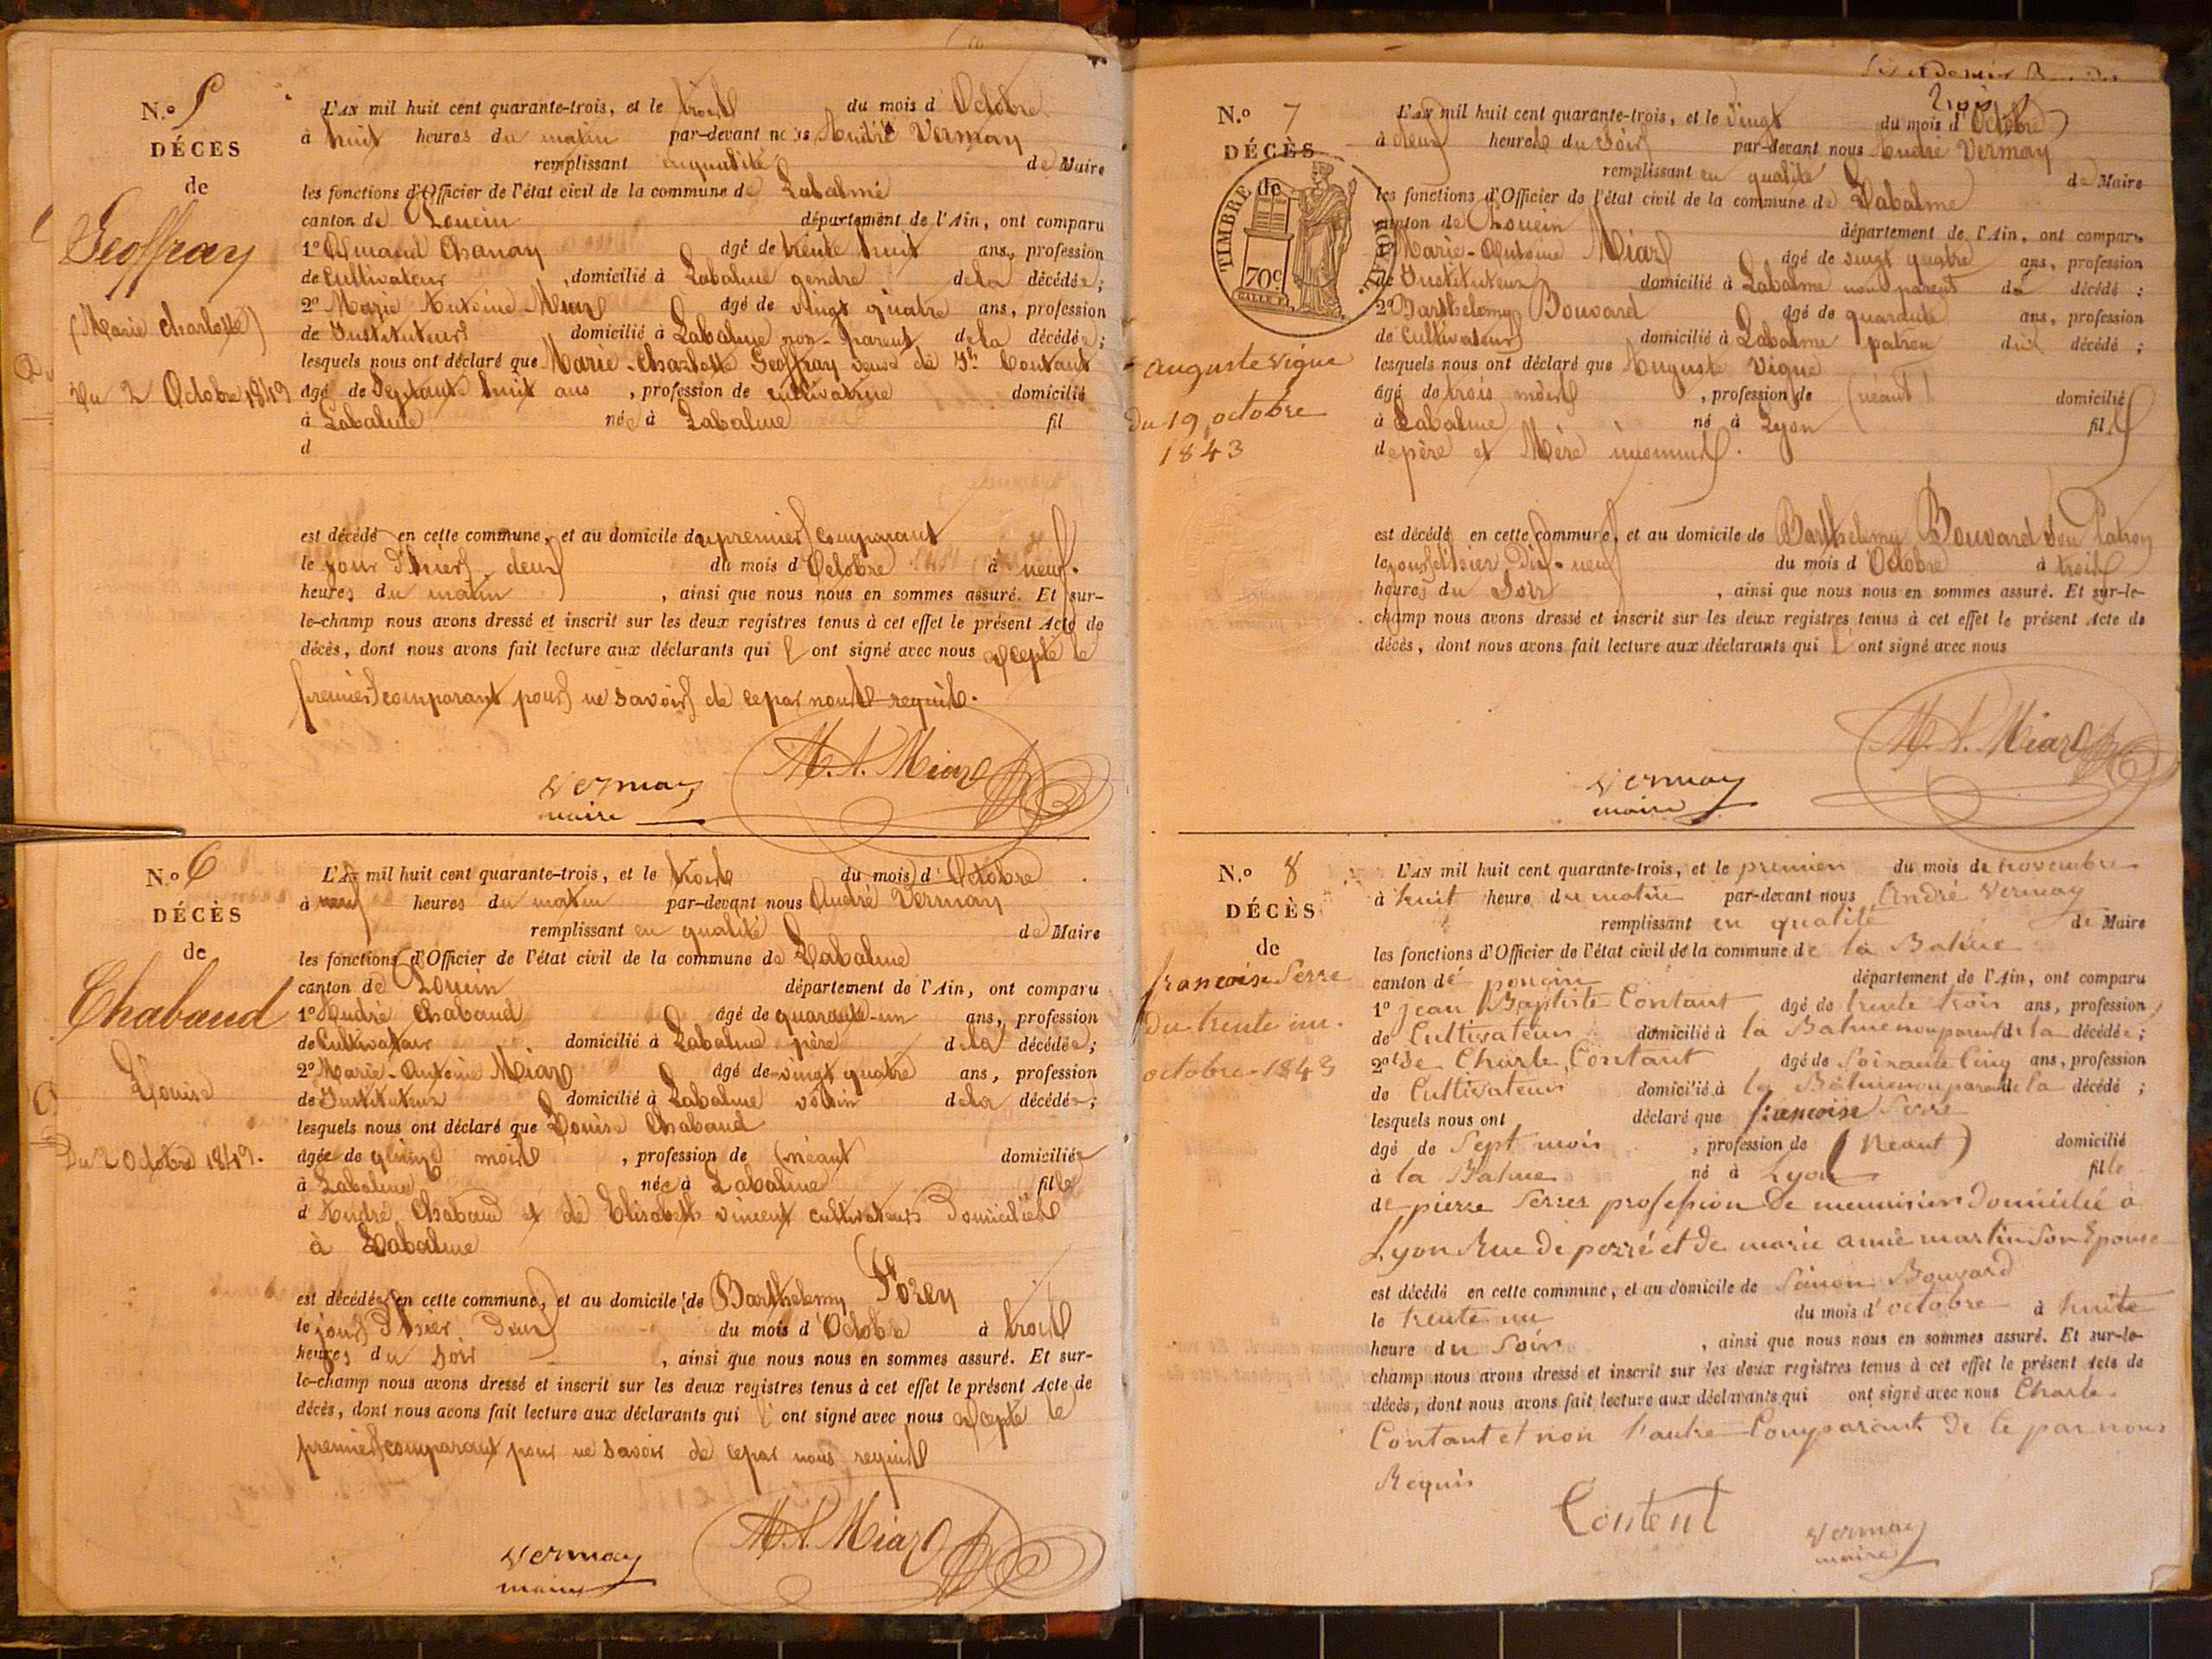 N.o 5
DÉCES
de
Geoffray
(Marie Charlotte)
Du 2 Octobre 1843
L'AN mil huit cent quarante-trois, et le trois du mois d'Octobre
à huit heures du matin par-devant nous André Vermay
remplissant en qualité de Maire
les fonctions d'Officier de l'état civil de la commune de Labalme
canton de Poncin département de l'Ain, ont comparu
1o Chanay âgé de trente huit ans, profession
de Cultivateur, domicilié à Labalme gendre de la décédée;
2o Marie Antoine Miaz âgé de vingt quatre ans, profession
de Instituteur domicilié à Labalme non-parent de la décédée;
lesquels nous ont déclaré que Marie-Charlotte Geoffray veuve de Jh Contant
âgé de Septante huit ans, profession de cultivatrice domicilié
à Labalme née à Labalme fil
d
est décédé en cette commune, et au domicile du premier comparant
le jour d'hier deux du mois d'Octobre à neuf
heures du matin, ainsi que nous nous en sommes assuré. Et sur-
le-champ nous avons dressé et inscrit sur les deux registres tenus à cet effet le présent Acte de
décès, dont nous avons fait lecture aux déclarants qui l'ont signé avec nous excepté le
premier comparant pour ne savoir de ce par nous requis.
M. A. Miaz
Vermay
maire
N.o 6
DÉCÈS
de
Chabaud
Louise
Du 2 Octobre 1843.
L'AN mil huit cent quarante-trois, et le trois du mois d'Octobre
à neuf heures du matin par-devant nous André Vermay
remplissant en qualité de Maire
les fonctions d'Officier de l'état civil de la commune de Labalme
canton de Poncin département de l'Ain, ont comparu
1o André Chabaud âgé de quarante-un ans, profession
de Cultivateur domicilié à Labalme père de la décédée;
2o Marie-Antoine Miaz âgé de vingt quatre ans, profession
de Instituteur domicilié à Labalme voisin de la décédée;
lesquels nous ont déclaré que Louise Chabaud
âgée de quinze mois, profession de (néant domiciliée
à Labalme née à Labalme fille
d'André Chabaud et de Elisabeth vincent cultivateurs domiciliés
à Labalme
est décédée en cette commune, et au domicile de Barthelemy Forey
le jour d'hier Deux du mois d'Octobre à trois
heures du soir, ainsi que nous nous en sommes assuré. Et sur-
le-champ nous avons dressé et inscrit sur les deux registres tenus à cet effet le présent Acte de
décès, dont nous avons fait lecture aux déclarants qui l'ont signé avec nous excepté le
premier comparant pour ne savoir de ce par nous requis
M. A. Miaz
Vermay
maire
N.o 7
DÉCÈS
de
TIMBRE ROYAL
70c
auguste vigne
Du 19 octobre
1843
trois
L'AN mil huit cent quarante-trois, et le vingt du mois d'Octobre
à deux heures du Soir par-devant nous André Vermay
remplissant en qualité de Maire
les fonctions d'Officier de l'état civil de la commune de Labalme
canton de Poncin département de l'Ain, ont comparu
Marie-Antoine Miaz âgé de vingt quatre ans, profession
de Instituteur domicilié à Labalme non parent du décédé;
2o Barthelemy Bouvard âgé de quarante ans, profession
de Cultivateur domicilié à Labalme patron du décédé;
lesquels nous ont déclaré que Auguste Vigne
âgé de trois mois, profession de (néant) domicilié
à Labalme né à Lyon fils
de père et Mère inconnus.
est décédé en cette commune, et au domicile de Barthelemy Bouvard Son Patron
le jour d'hier Dix-neuf du mois d'Octobre à trois
heures du Soir, ainsi que nous nous en sommes assuré. Et sur-le-
champ nous avons dressé et inscrit sur les deux registres tenus à cet effet le présent Acte de
décès, dont nous avons fait lecture aux déclarants qui l'ont signé avec nous
M. A. Miaz
Vermay
maire
N.o 8
DÉCÈS
de
françoise Serre
Du trente un
octobre-1843
L'AN mil huit cent quarante-trois, et le premier du mois de novembre
à huit heure du matin par-devant nous André Vermay
remplissant en qualité de Maire
les fonctions d'Officier de l'état civil de la commune de la Balme
canton de poncin département de l'Ain, ont comparu
1o jean Baptiste Contant âgé de trente trois ans, profession
de Cultivateur domicilié à la Balme non parent de la décédée;
2o Charle Contant âgé de Soixante Cinq ans, profession
de Cultivateur domicilié à la Balme non parent de la décédé;
lesquels nous ont déclaré que françoise Serre
âgé de Sept mois, profession de (Neant) domicilié
à la Balme né à Lyon fille
de pierre Serre profession De menuisier Domicilié à
Lyon Rue De et De marie Son Epouse
est décédé en cette commune, et au domicile de Simon Bouvard
le trente un du mois d'octobre à huite
heure du Soir, ainsi que nous nous en sommes assuré. Et sur-le-
champ nous avons dressé et inscrit sur les deux registres tenus à cet effet le présent Acte de
décès, dont nous avons fait lecture aux déclarants qui ont signé avec nous Charle
Contant et non l'autre Comparant De Ce par nous
Requis
Contant
Vermay
maire